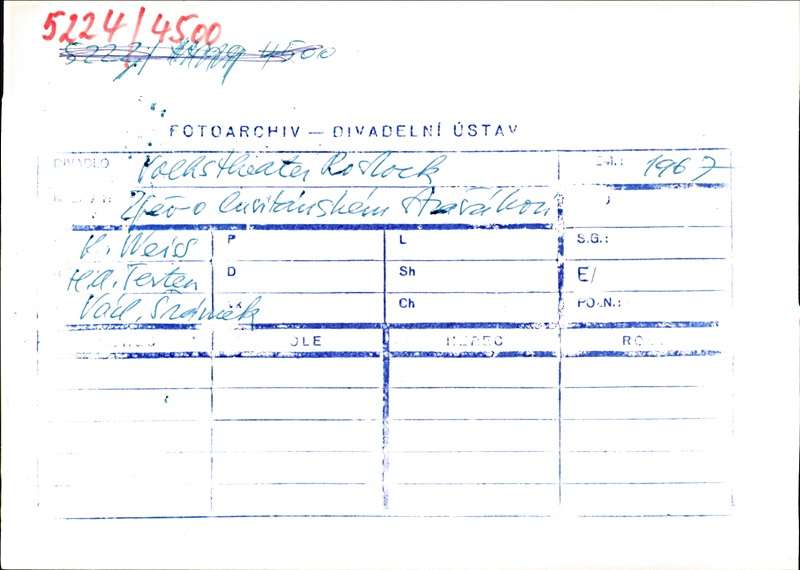 5224/4500
4500
FOTOARCHIV — DIVADELNÍ ÚSTAV
DIVADLO Volkstheater Rostock 1967
Zpěv o lusitánském strašákovi
P. Weiss P L S.G.:
H.A. Perten D Sh E/
Vád. Šrámek Ch
HEREC